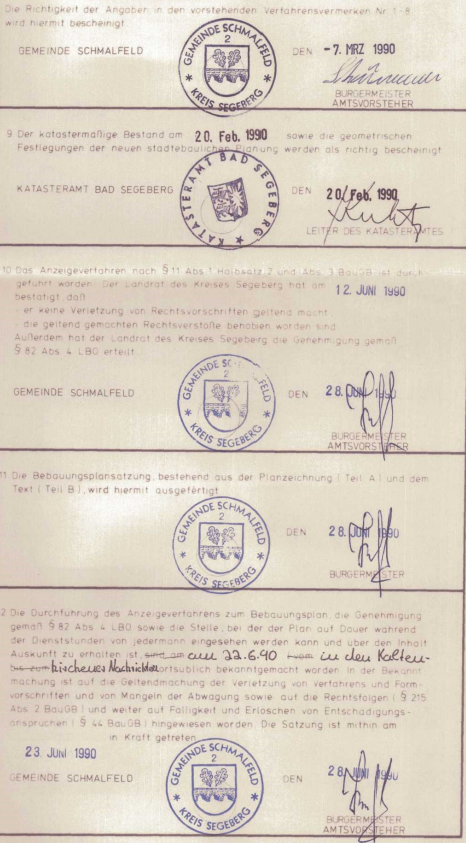 Die Richtigkeit der Angaben in den vorstehenden Verfahrensvermerken Nr. 1-8
wird hiermit bescheinigt.
GEMEINDE SCHMALFELD
GEMEINDE SCHMALFELD
2
* KREIS SEGEBERG *
DEN -7. MRZ 1990
BÜRGERMEISTER
AMTSVORSTEHER
9 Der katastermäßige Bestand am 20. Feb. 1990 sowie die geometrischen
Festlegungen der neuen städtebaulichen Planung werden als richtig bescheinigt
KATASTERAMT BAD SEGEBERG
KATASTERAMT BAD SEGEBERG
DEN 20. Feb. 1990
LEITER DES KATASTERAMTES
10 Das Anzeigeverfahren nach § 11 Abs. 1 Halbsatz 2 und Abs. 3 BauGB ist durch-
geführt worden. Der Landrat des Kreises Segeberg hat am 12. JUNI 1990
bestätigt, daß
- er keine Verletzung von Rechtsvorschriften geltend macht
- die geltend gemachten Rechtsverstöße behoben worden sind.
Außerdem hat der Landrat des Kreises Segeberg die Genehmigung gemäß
§ 82 Abs. 4 LBO erteilt.
GEMEINDE SCHMALFELD
GEMEINDE SCHMALFELD
2
* KREIS SEGEBERG *
DEN 28. JUNI 1990
BÜRGERMEISTER
AMTSVORSTEHER
11 Die Bebauungsplansatzung, bestehend aus der Planzeichnung (Teil A) und dem
Text (Teil B), wird hiermit ausgefertigt
GEMEINDE SCHMALFELD
2
* KREIS SEGEBERG *
DEN 28. JUNI 1990
BÜRGERMEISTER
2 Die Durchführung des Anzeigeverfahrens zum Bebauungsplan, die Genehmigung
gemäß § 82 Abs. 4 LBO sowie die Stelle, bei der der Plan auf Dauer während
der Dienststunden von jedermann eingesehen werden kann und über den Inhalt
Auskunft zu erhalten ist, sind am am 22.6.90 vom in den Kalten-
bis zum kirchener Nachrichten ortsüblich bekanntgemacht worden. In der Bekannt-
machung ist auf die Geltendmachung der Verletzung von Verfahrens- und Form-
vorschriften und von Mängeln der Abwägung sowie auf die Rechtsfolgen (§ 215
Abs. 2 BauGB) und weiter auf Fälligkeit und Erlöschen von Entschädigungs-
ansprüchen (§ 44 BauGB) hingewiesen worden. Die Satzung ist mithin am
in Kraft getreten.
23. JUNI 1990
GEMEINDE SCHMALFELD
GEMEINDE SCHMALFELD
2
* KREIS SEGEBERG *
DEN 28. JUNI 1990
BÜRGERMEISTER
AMTSVORSTEHER